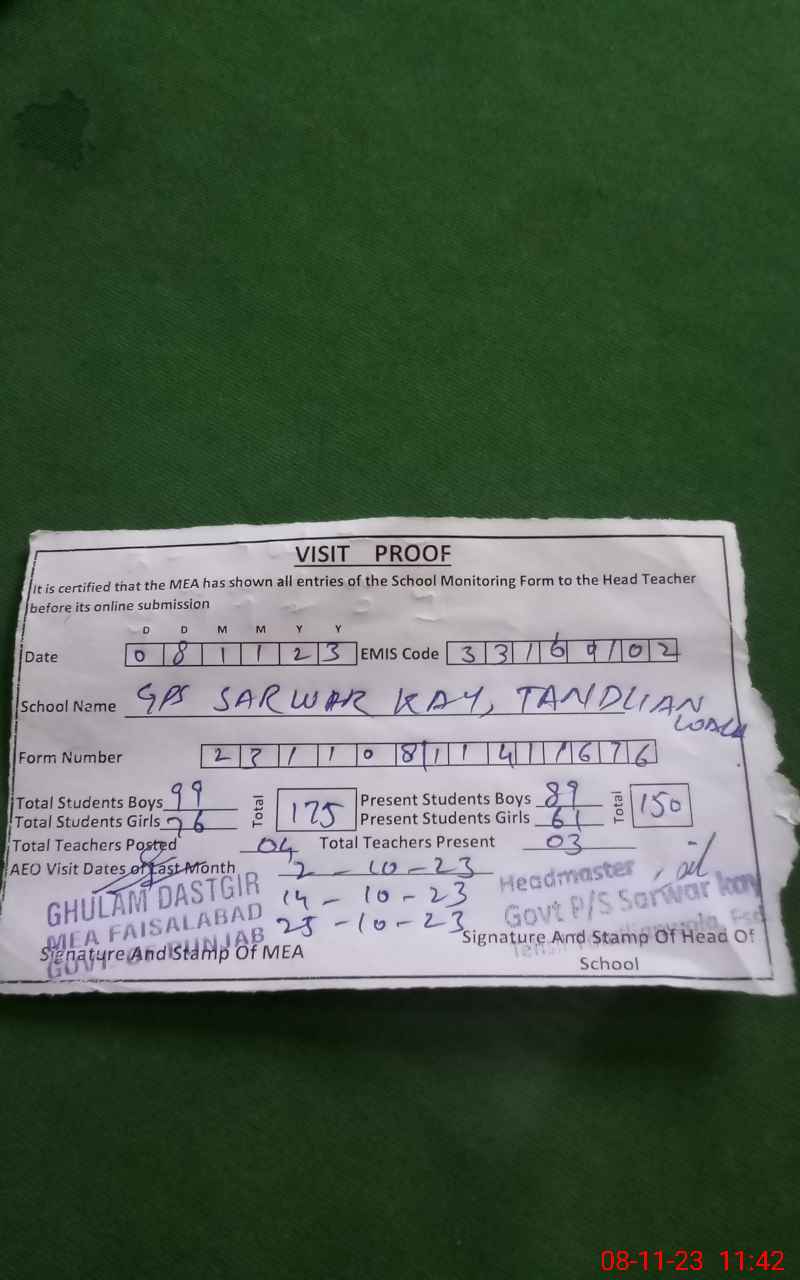 VISIT PROOF
It is certified that the MEA has shown all entries of the School Monitoring Form to the Head Teacher
before its online submission
D D M M Y Y
Date 0 8 1 1 2 3 EMIS Code 3 3 1 6 9 1 0 2
School Name GPS SARWAR KAY, TANDLIAN
WALA
Form Number 2 3 1 1 0 8 1 1 4 1 1 6 7 6
Total Students Boys 99 Total 175 Present Students Boys 89 Total 150
Total Students Girls 76 Present Students Girls 61
Total Teachers Posted 04 Total Teachers Present 03
AEO Visit Dates of Last Month 2-10-23
14-10-23
25-10-23
GHULAM DASTGIR
MEA FAISALABAD
GOVT OF PUNJAB
Signature And Stamp Of MEA
Headmaster
Govt P/S Sarwar kay
Signature And Stamp Of Head Of
School
08-11-23 11:42